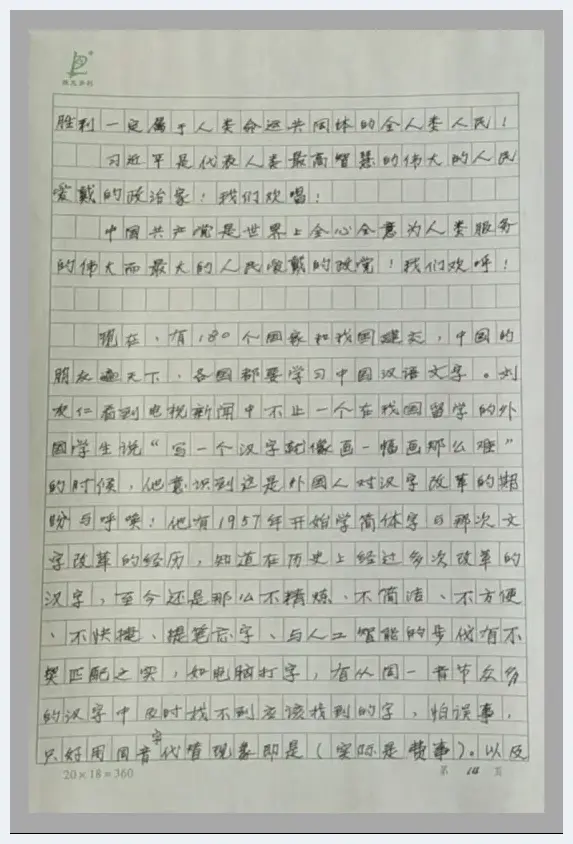 胜利一定属于人类命运共同体的全人类人民！
习近平是代表人类最高智慧的伟大的人民
爱戴的政治家！我们欢唱！
中国共产党是世界上全心全意为人类服务
的伟大而最大的人民爱戴的政党！我们欢呼！
现在，有180个国家和我国建交，中国的
朋友遍天下，各国都要学习中国汉语文字。刘
次仁看到电视新闻中不止一个在我国留学的外
国学生说“写一个汉字就像画一幅画那么难”
的时候，他意识到这是外国人对汉字改革的期
盼与呼唤！他有1957年开始学简体字与那次文
字改革的经历，知道在历史上经过多次改革的
汉字，至今还是那么不精炼、不简洁、不方便
、不快捷、提笔忘字、与人工智能的步伐有不
契匹配之实，如电脑打字，有从同一音节众多
的汉字中及时找不到应该找到的字，怕误事，
只好用同音字代替现象即是（实际是费事）。以及
20×18=360
第 14 页